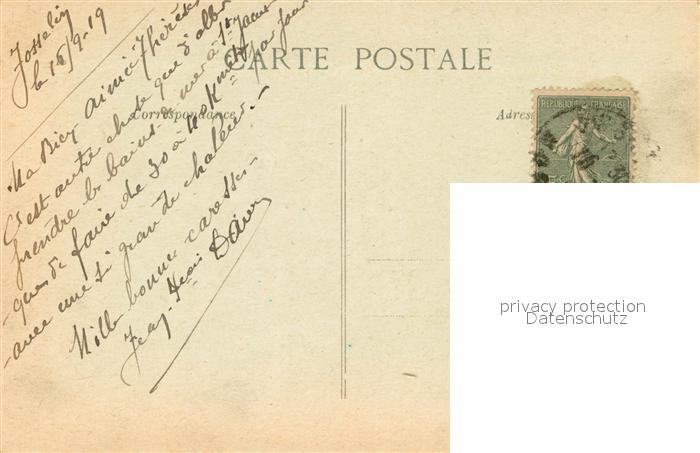 Josselin
le 15/9-19
CARTE POSTALE
Correspondance
Adres
REPUBLIQUE FRANÇAISE
Ma Bien aimée Thérèse
C'est autre chose que d'aller
prendre les bains de mer à St Jacut
que de faire de 30 à 40 Kmet par jour
avec une si grande chaleur.-
Mille bonnes caresses-
Jean
privacy protection
Datenschutz